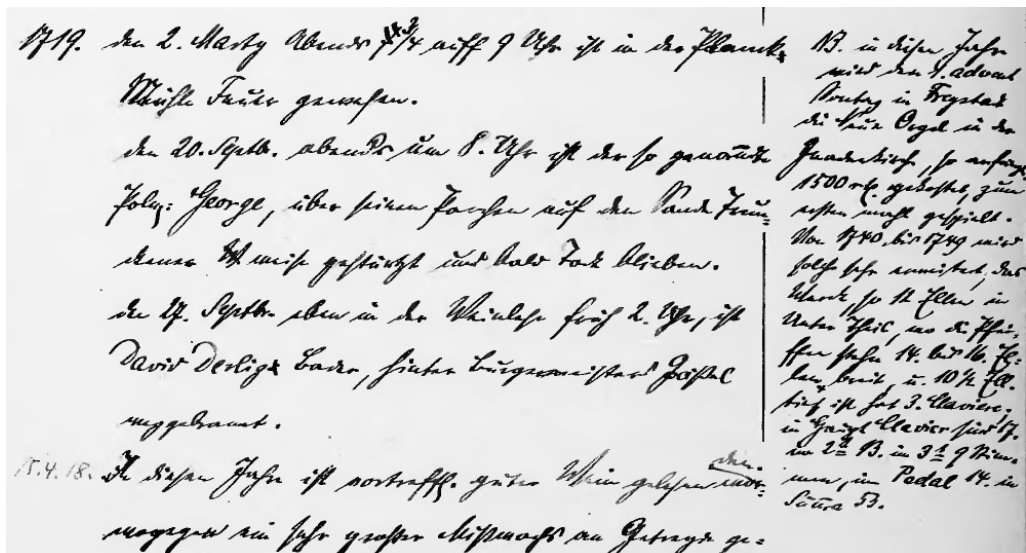 1719. den 2. Marty Abends 3/4 auff 9 Uhr ist in der Planck-
Mühle Feuer gewesen.
den 20. Septb. abends um 8. Uhr ist der so genannte
George, über seinen Parchen auf dem Sande Trun-
kener weise gestürtzt und bald Todt blieben.
den 27. Septbr. eben in der Weinlese früh 2. Uhr, ist
David Bader, hinter Burgemeisters
weggebrannt.
15.4.18. In diesen Jahre ist vortreffl. guter Wein gelesen worden.
wogegen ein sehr großer Mißwachs an Getreyde ge-
NB. in diesen Jahre
wird den 1. advent
Sontag in Freystadt
die Neue Orgel in der
Gnadenkirche, so anfangs
1500 rth. gekostet, zum
ersten mahl gespielt.
Von 1740 bis 1749 wird
solche sehr erweitert, das
Werk, so 12 Ellen in
Unter Theil, wo die Pfei-
ffen stehn 14. bis 16. El-
len breit, u. 10 1/2 Ell.
tief ist hat 3. Claviere,
in Haupt Clavier sind 17.
im 2t 13. im 3t 9 Stim-
men, im Pedal 14. in
Suma 53.